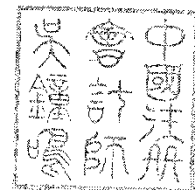 中國注册
會計師
吳鍾鳴